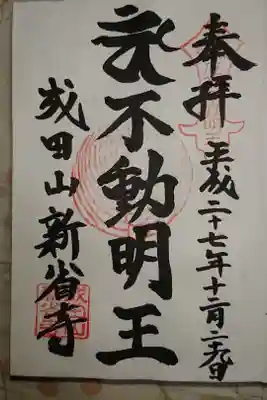 奉拝 平成二十七年十二月二十九日
不動明王
成田山新省寺